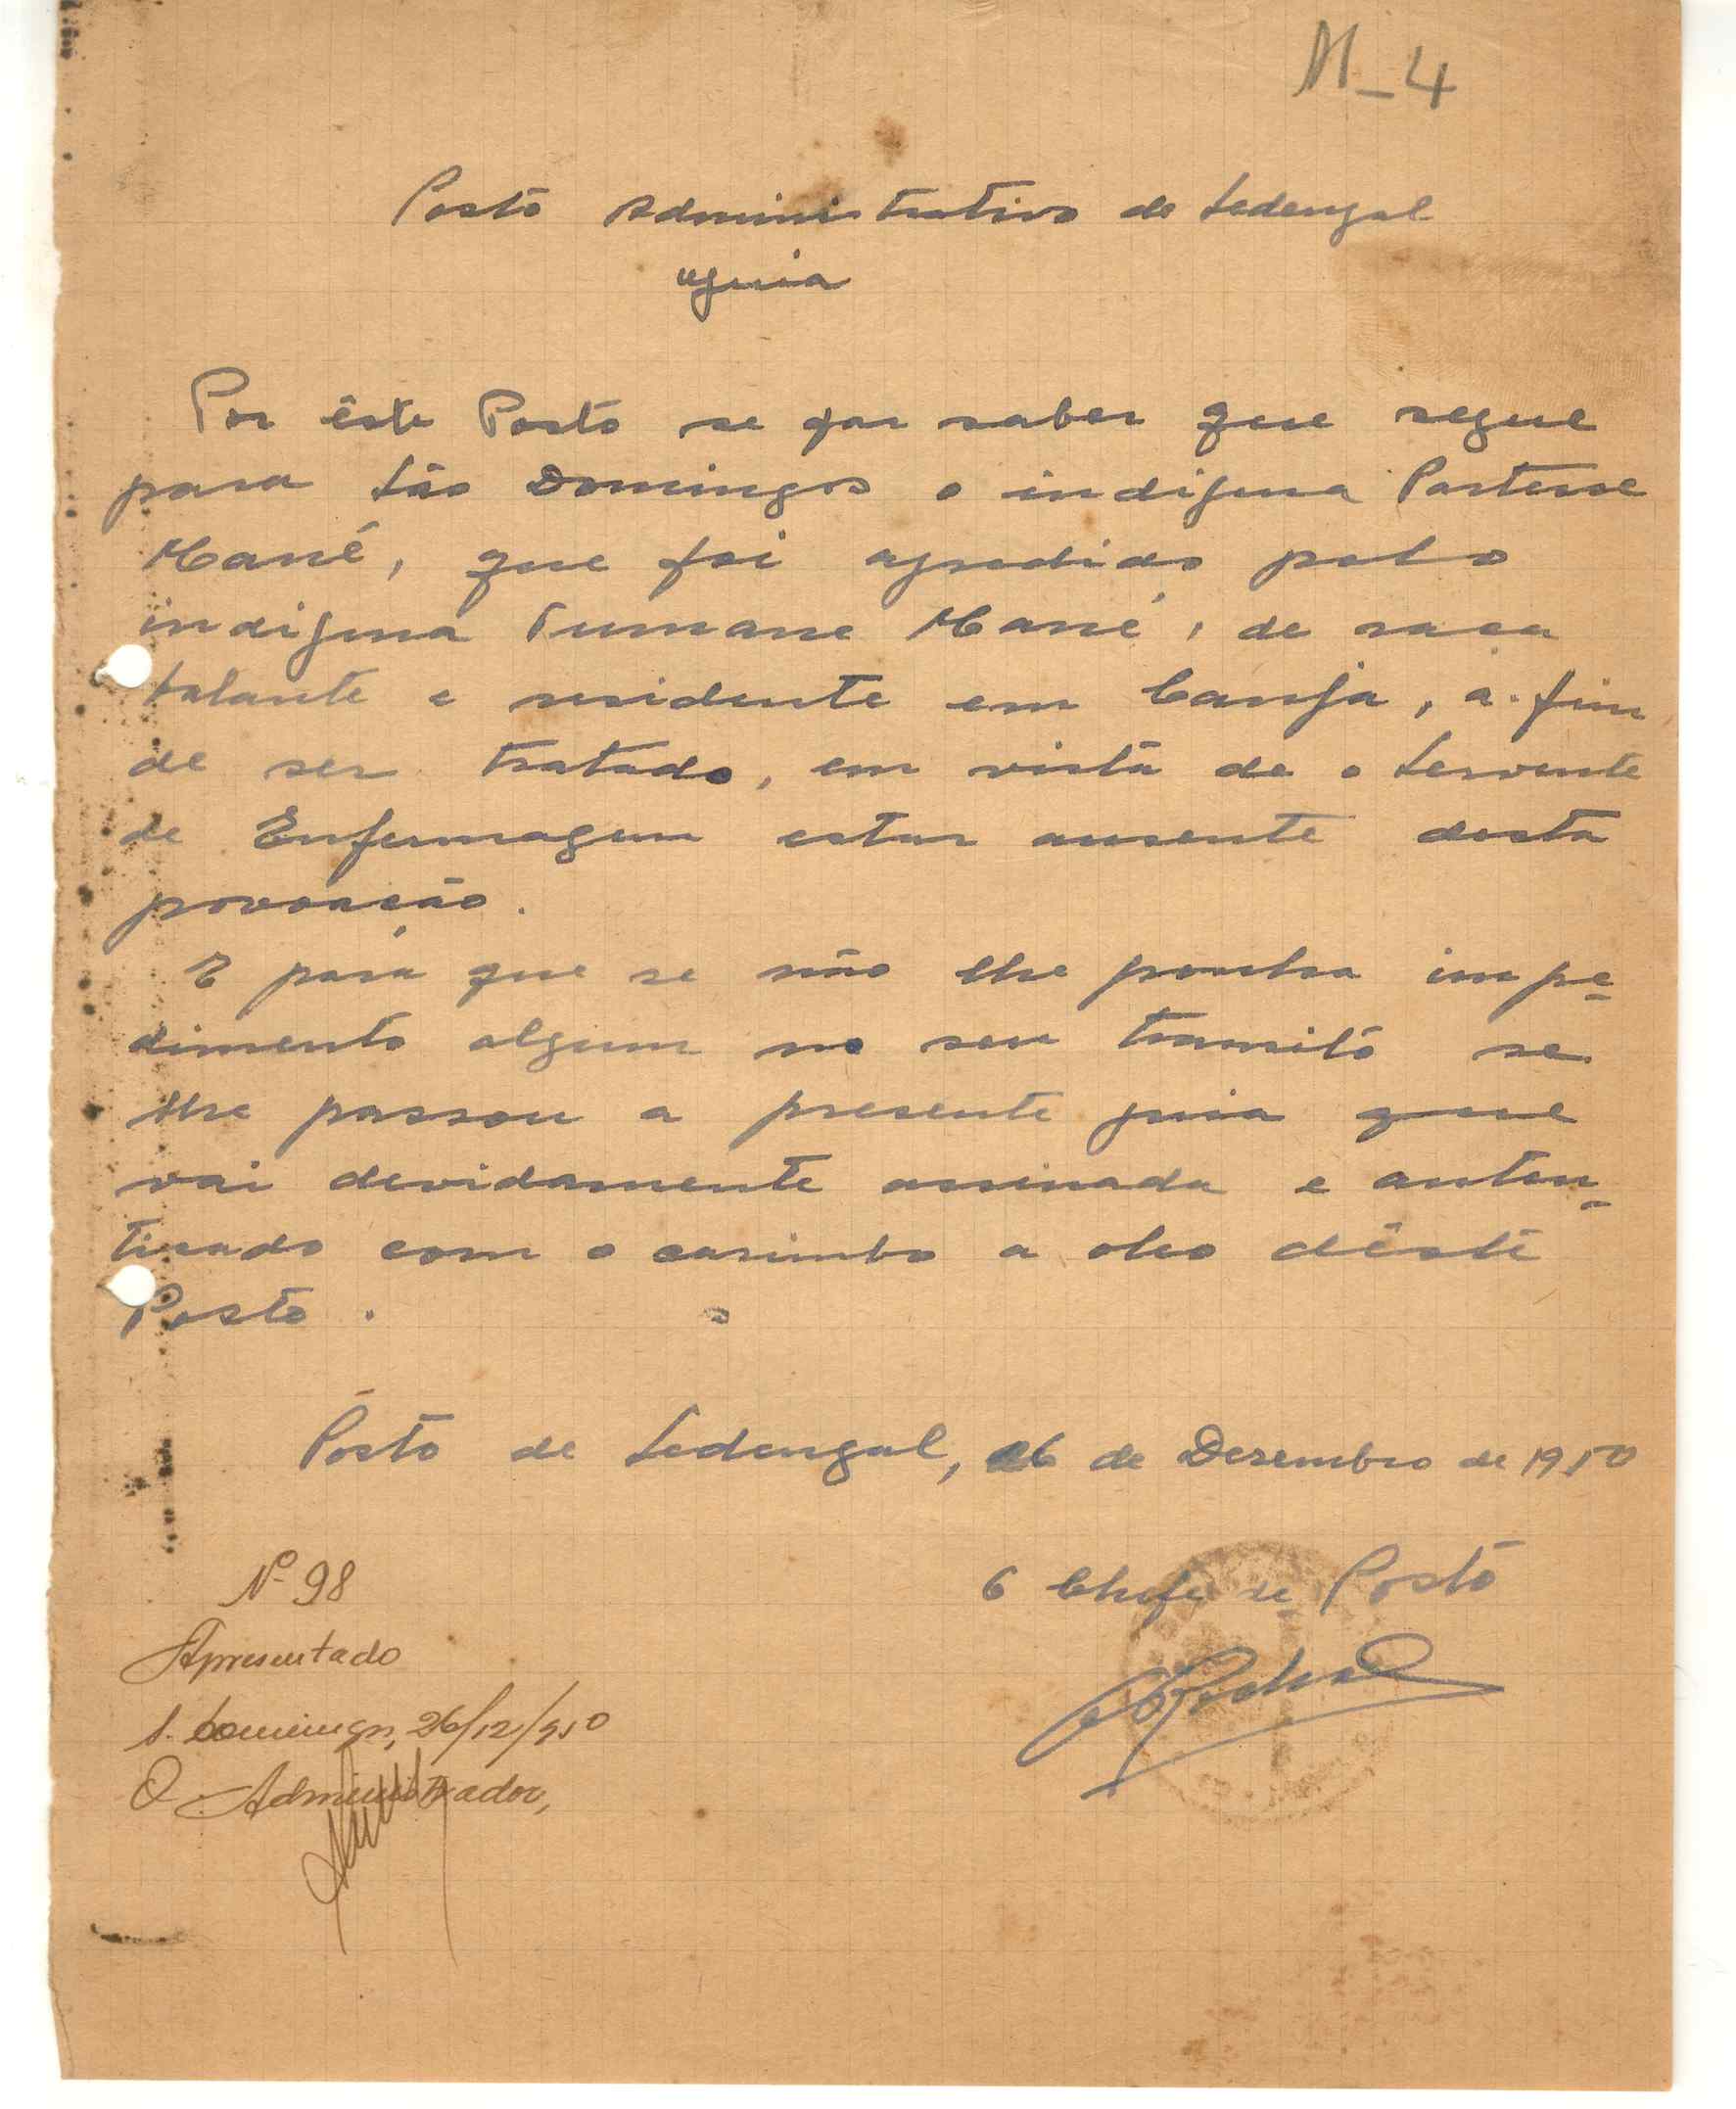 M_4
Posto Administrativo de Sedengal
Guia
Por êste Posto se faz saber que segue
para São Domingos o indigena
Mané, que foi agredido pelo
indigena Tumane Mané, de raça
balante e residente em Canja, a-fim
de ser tratado, em vista de o Servente
de Enfermagem estar ausente desta
povoação.
E para que se não lhe ponha impe-
dimento algum no seu transito se
lhe passou a presente guia que
vai devidamente assinada e auten-
ticado com o carimbo a oleo dêste
Posto.
Pôsto de Sedengal, 26 de Dezembro de 1950
Nº 98
O Chefe de Posto
Apresentado
S. Domingos, 26/12/950
O Administrador,